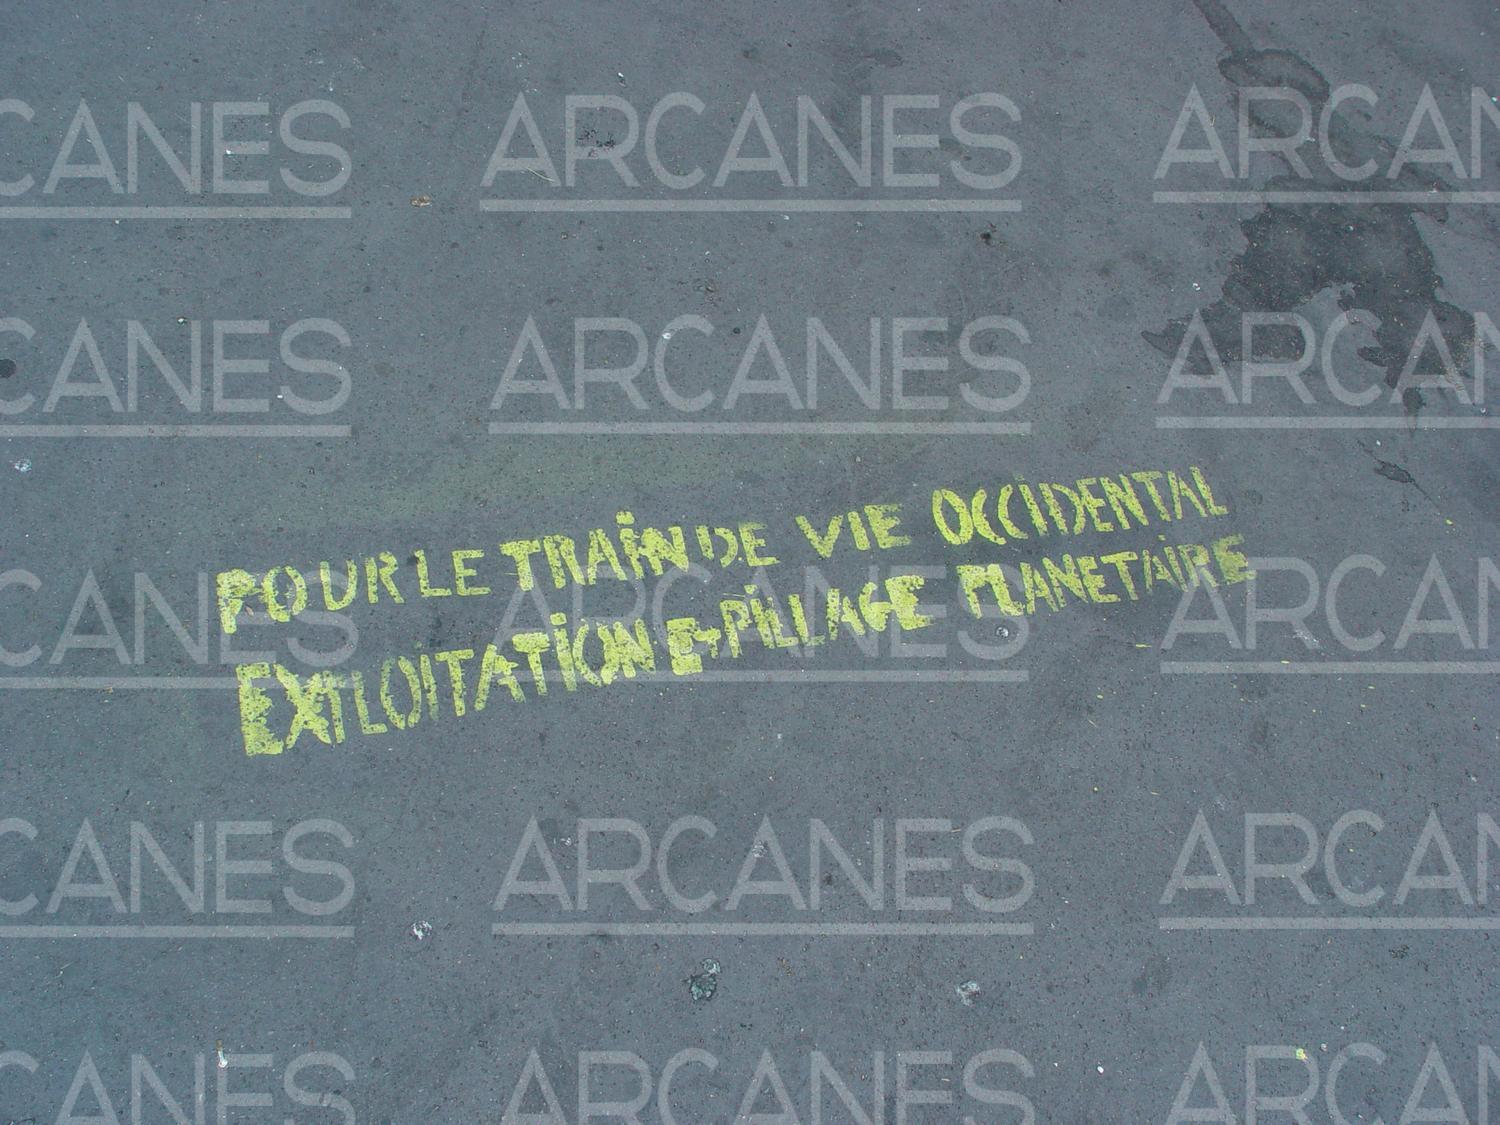 CANES ARCANES ARCAN
CANES ARCANES ARCAN
POUR LE TRAIN DE VIE OCCIDENTAL
EXPLOITATION ET PILLAGE PLANETAIRE
CANES ARCANES ARCAN
CANES ARCANES ARCAN
CANES ARCANES ARCAN